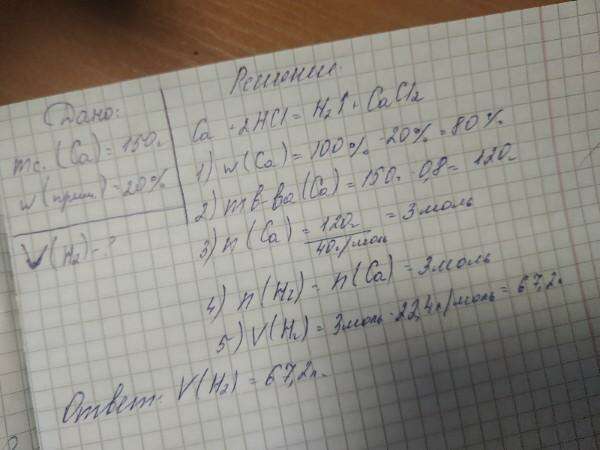 Дано:
mс. (Ca) = 150г
w(прим.) = 20%
V(H2) - ?
Решение
Ca + 2HCl = H2↑ + CaCl2
1) w(Ca) = 100% - 20% = 80%
2) m в-ва (Ca) = 150г · 0,8 = 120г
3) n (Ca) = 120г / 40г/моль = 3 моль
4) n(H2) = n(Ca) = 3 моль
5) V(H2) = 3 моль · 22,4 л/моль = 67,2 л
Ответ: V(H2) = 67,2 л.